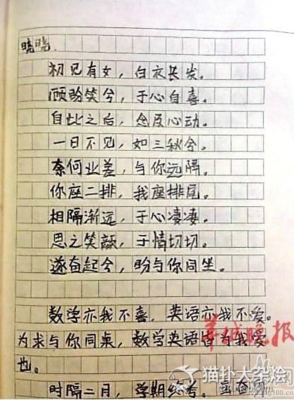 晓晓：
初见有女，白衣长发。
顾盼笑兮，于心自喜。
自此之后，念及心动。
一日不见，如三秋兮。
奈何业差，与你远隔。
你座二排，我座排尾。
相隔渐远，于心凄凄。
思之笑颜，于情切切。
遂奋起兮，盼与你同坐。
数学亦我不喜，英语亦我不爱。
为求与你同桌，数学英语皆可我爱
也。
羊城晚报
时隔二月，学期终考。
猫扑大杂烩